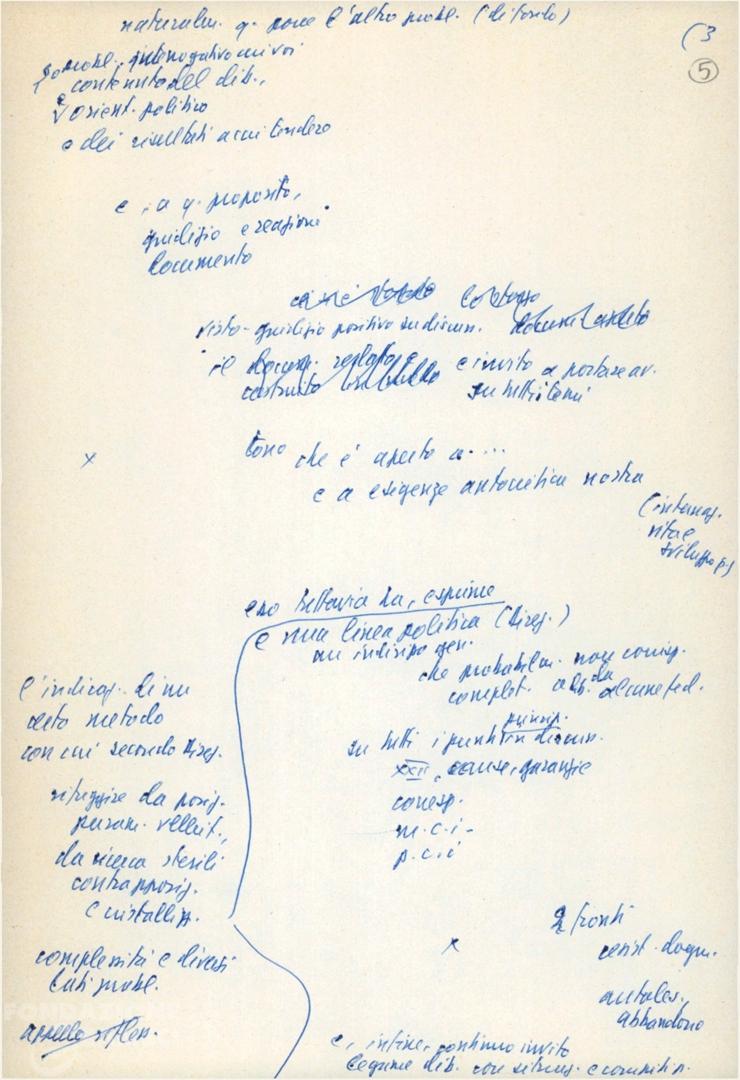 naturalm. q. pone l'altro probl. (di fondo)
(3
5
probl. interrogativo cui voi
contenuto del dib.,
e orient. politico
e dei risultati a cui tendere
e, a q. proposito,
giudizio e reazioni
documento
visto - giudizio positivo su discus.
il docum. e invito a portare av.
costruito su tutti i temi
x
tono che è aperto a ....
e a esigenze autocritica nostra
(intanag.
vita e
sviluppo p.)
esso tuttavia ha, esprime
e una linea politica (Direz.)
un indirizzo gen.
che probabilm. non corrisp.
complet. a dib. da alcune fed.
princip.
su tutti i punti in discuss.
XXII, cause, garanzie
conseg.
m.c.i -
p.c.i
l'indicaz. di un
certo metodo
con cui secondo Direz.
rifuggire da posiz.
puram. velleit.,
da ricerca sterili
contrapposiz.
e cristalliz.
complessità e diversi
lati probl.
appello rifless.
x
2 fronti
resist. dogm.
abbandono
e, infine, continuo invito
legame dib. con situaz. e compiti p.
FONDAZIONE